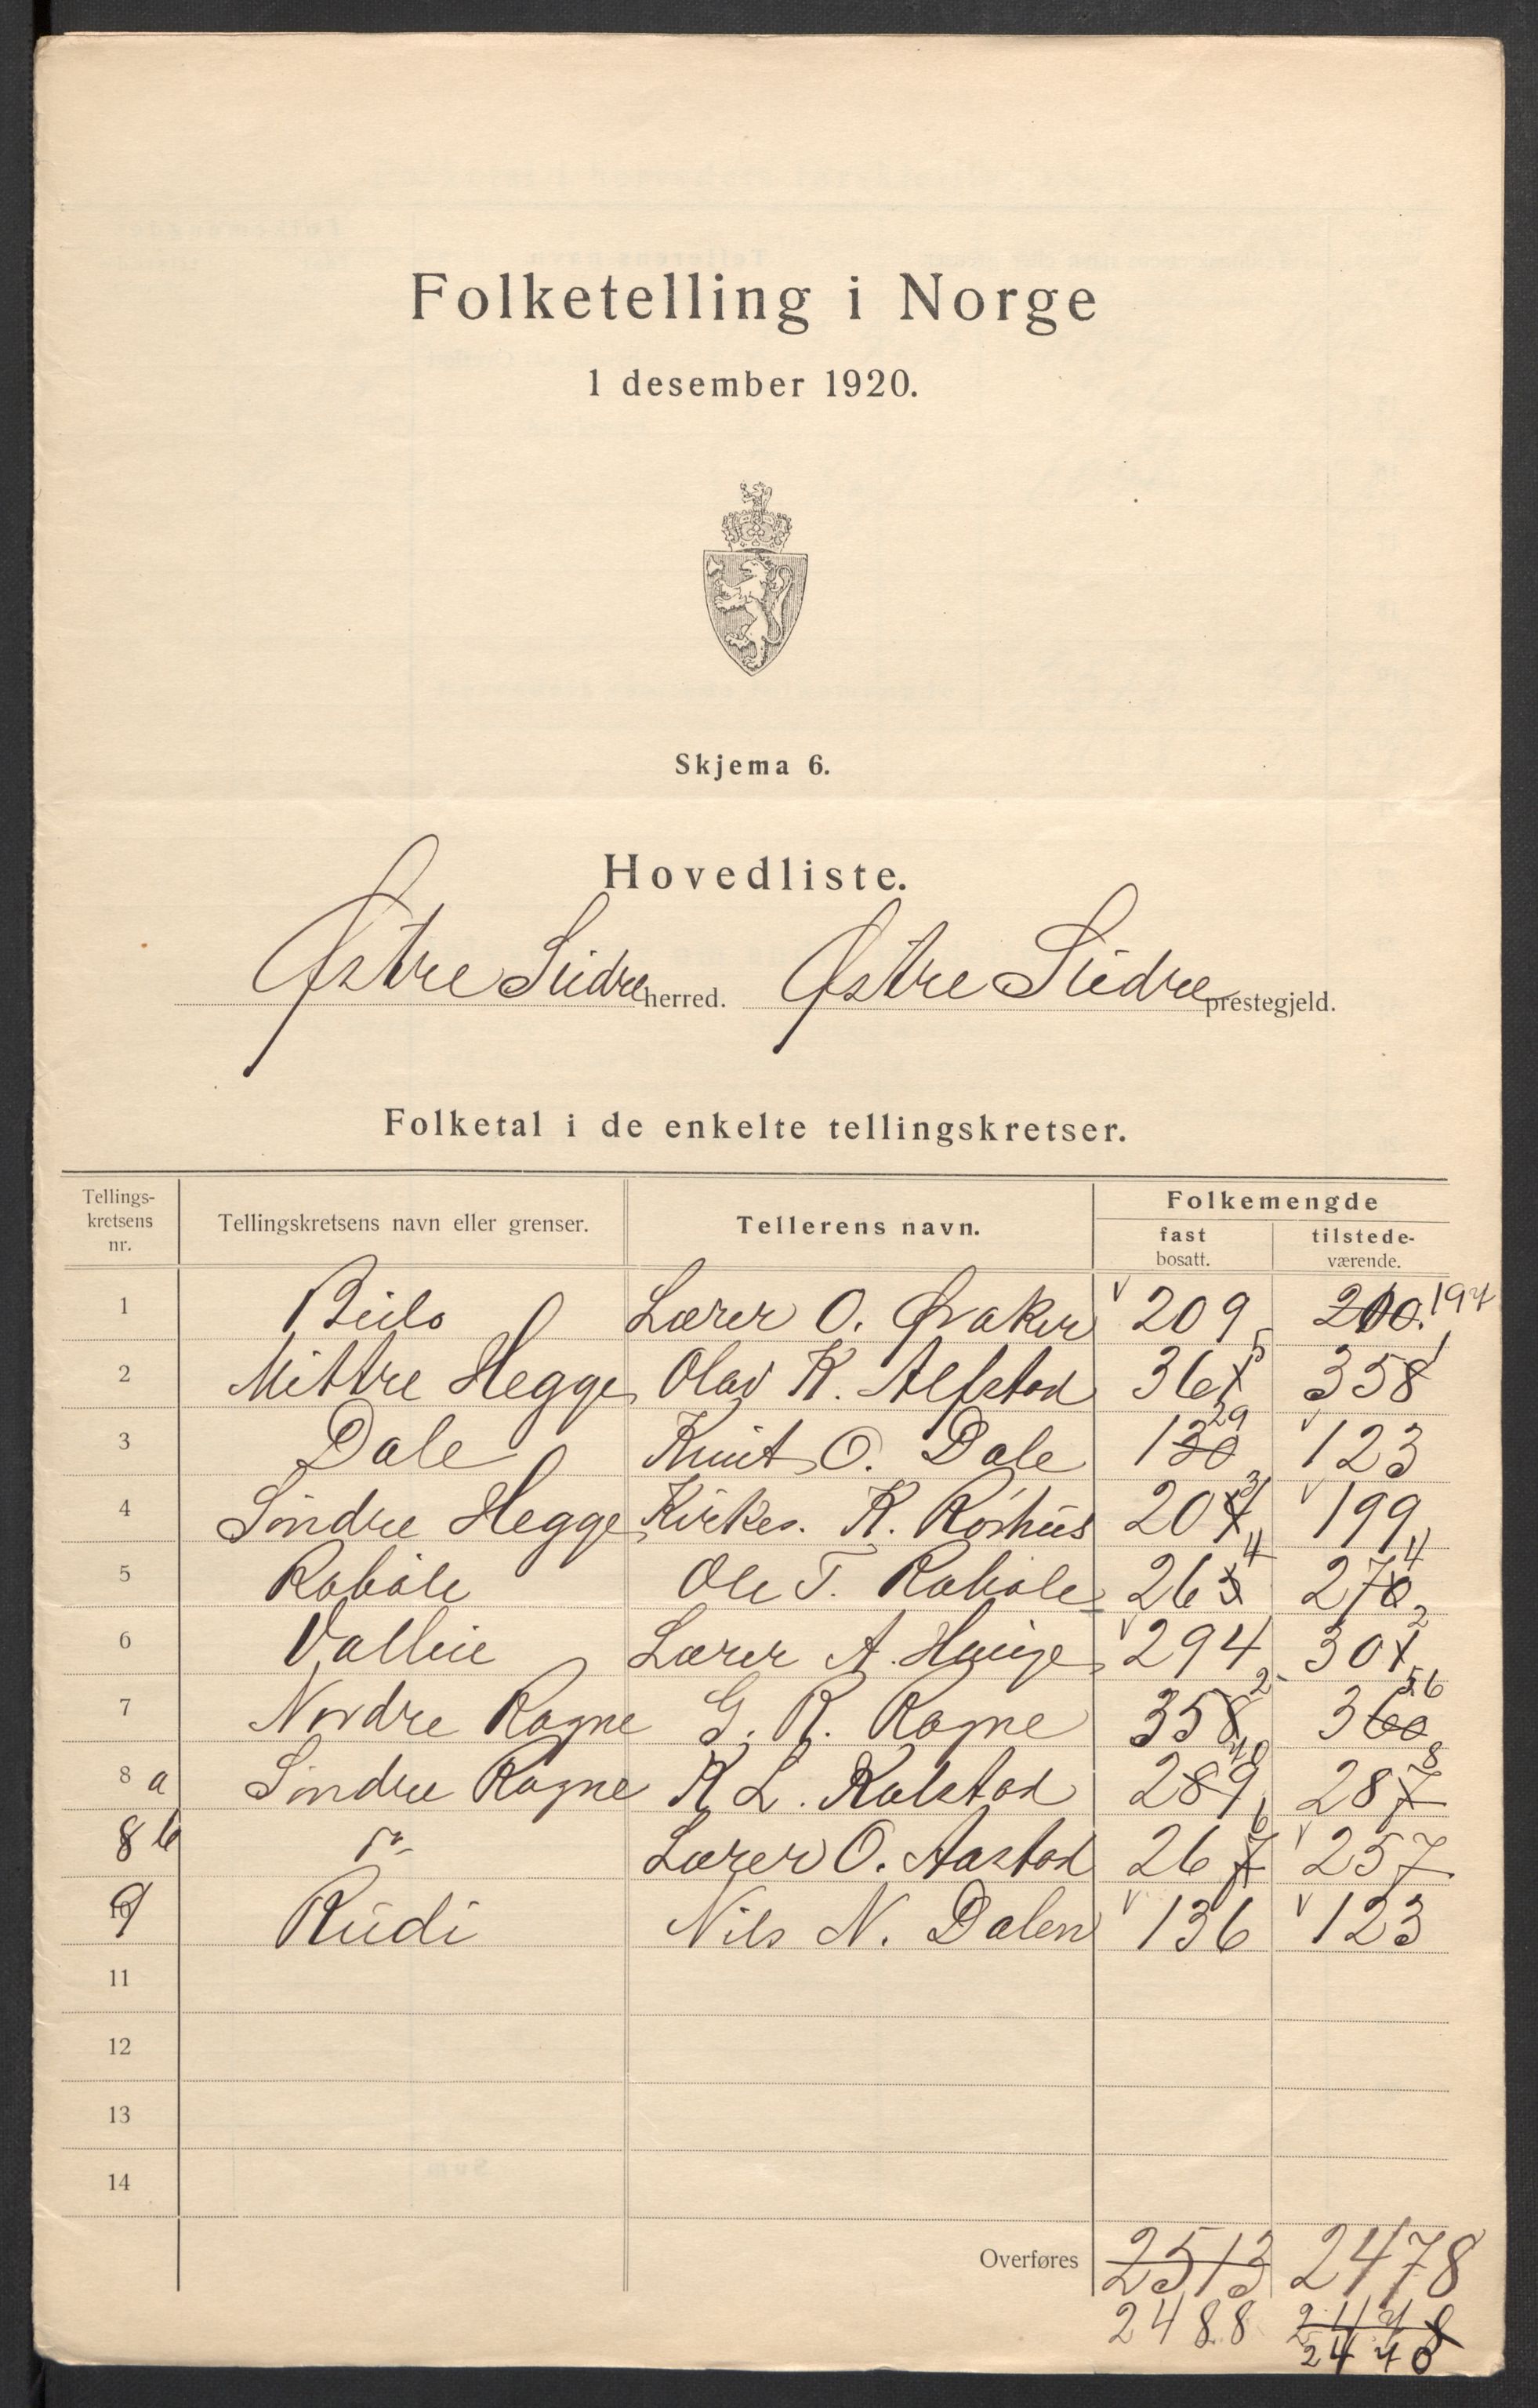 Folketelling i Norge
1 desember 1920.
Skjema 6.
Hovedliste.
Østre Slidre herred. Østre Slidre prestegjeld.
Folketal i de enkelte tellingskretser.
Tellings-kretsens nr. Tellingskretsens navn eller grenser. Tellerens navn. Folkemengde
fast bosatt. tilstede-værende.
1 Beito Lærer O. Øvaker 209 200. 197
2 Mittre Hegge Olav K. Alfstad 361 5 358 1
3 Dale Knut O. Dale 130 29 123
4 Søndre Hegge Kirkes. K. Róshus 204 3 199
5 Robøle Ole T. Robøle 263 4 270 4
6 Volbue Lærer A. Hauge 294 301 2
7 Nordre Rogne G. R. Rogne 358 2 360 56
8 a Søndre Rogne K. L. Kolstad 289 287 8
8 b Lærer O. Aastad 267 6 257
9 Rudi Nils N. Dalen 136 123
11
12
13
14
Overføres 2513 2478
2488
2440